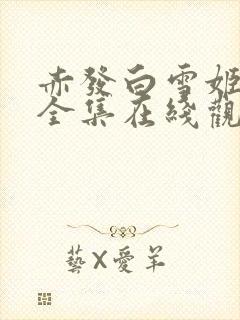 赤發白雪姬
全集在綫觀
藝X愛羊